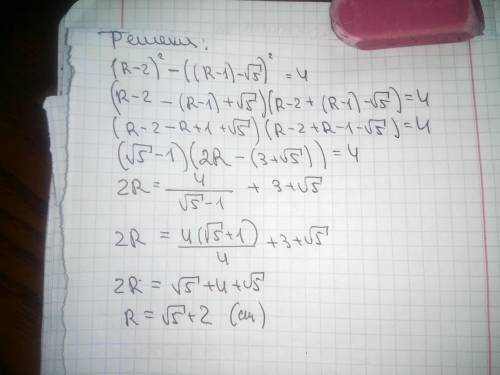 Решения:
(R-2)² - ((R-1)-√5)² = 4
(R-2 - (R-1) + √5)(R-2 + (R-1) - √5) = 4
(R-2-R+1+√5)(R-2+R-1-√5) = 4
(√5-1)(2R-(3+√5)) = 4
2R = 4/(√5-1) + 3+√5
2R = 4(√5+1)/4 + 3+√5
2R = √5+4+√5
R = √5+2 (см)